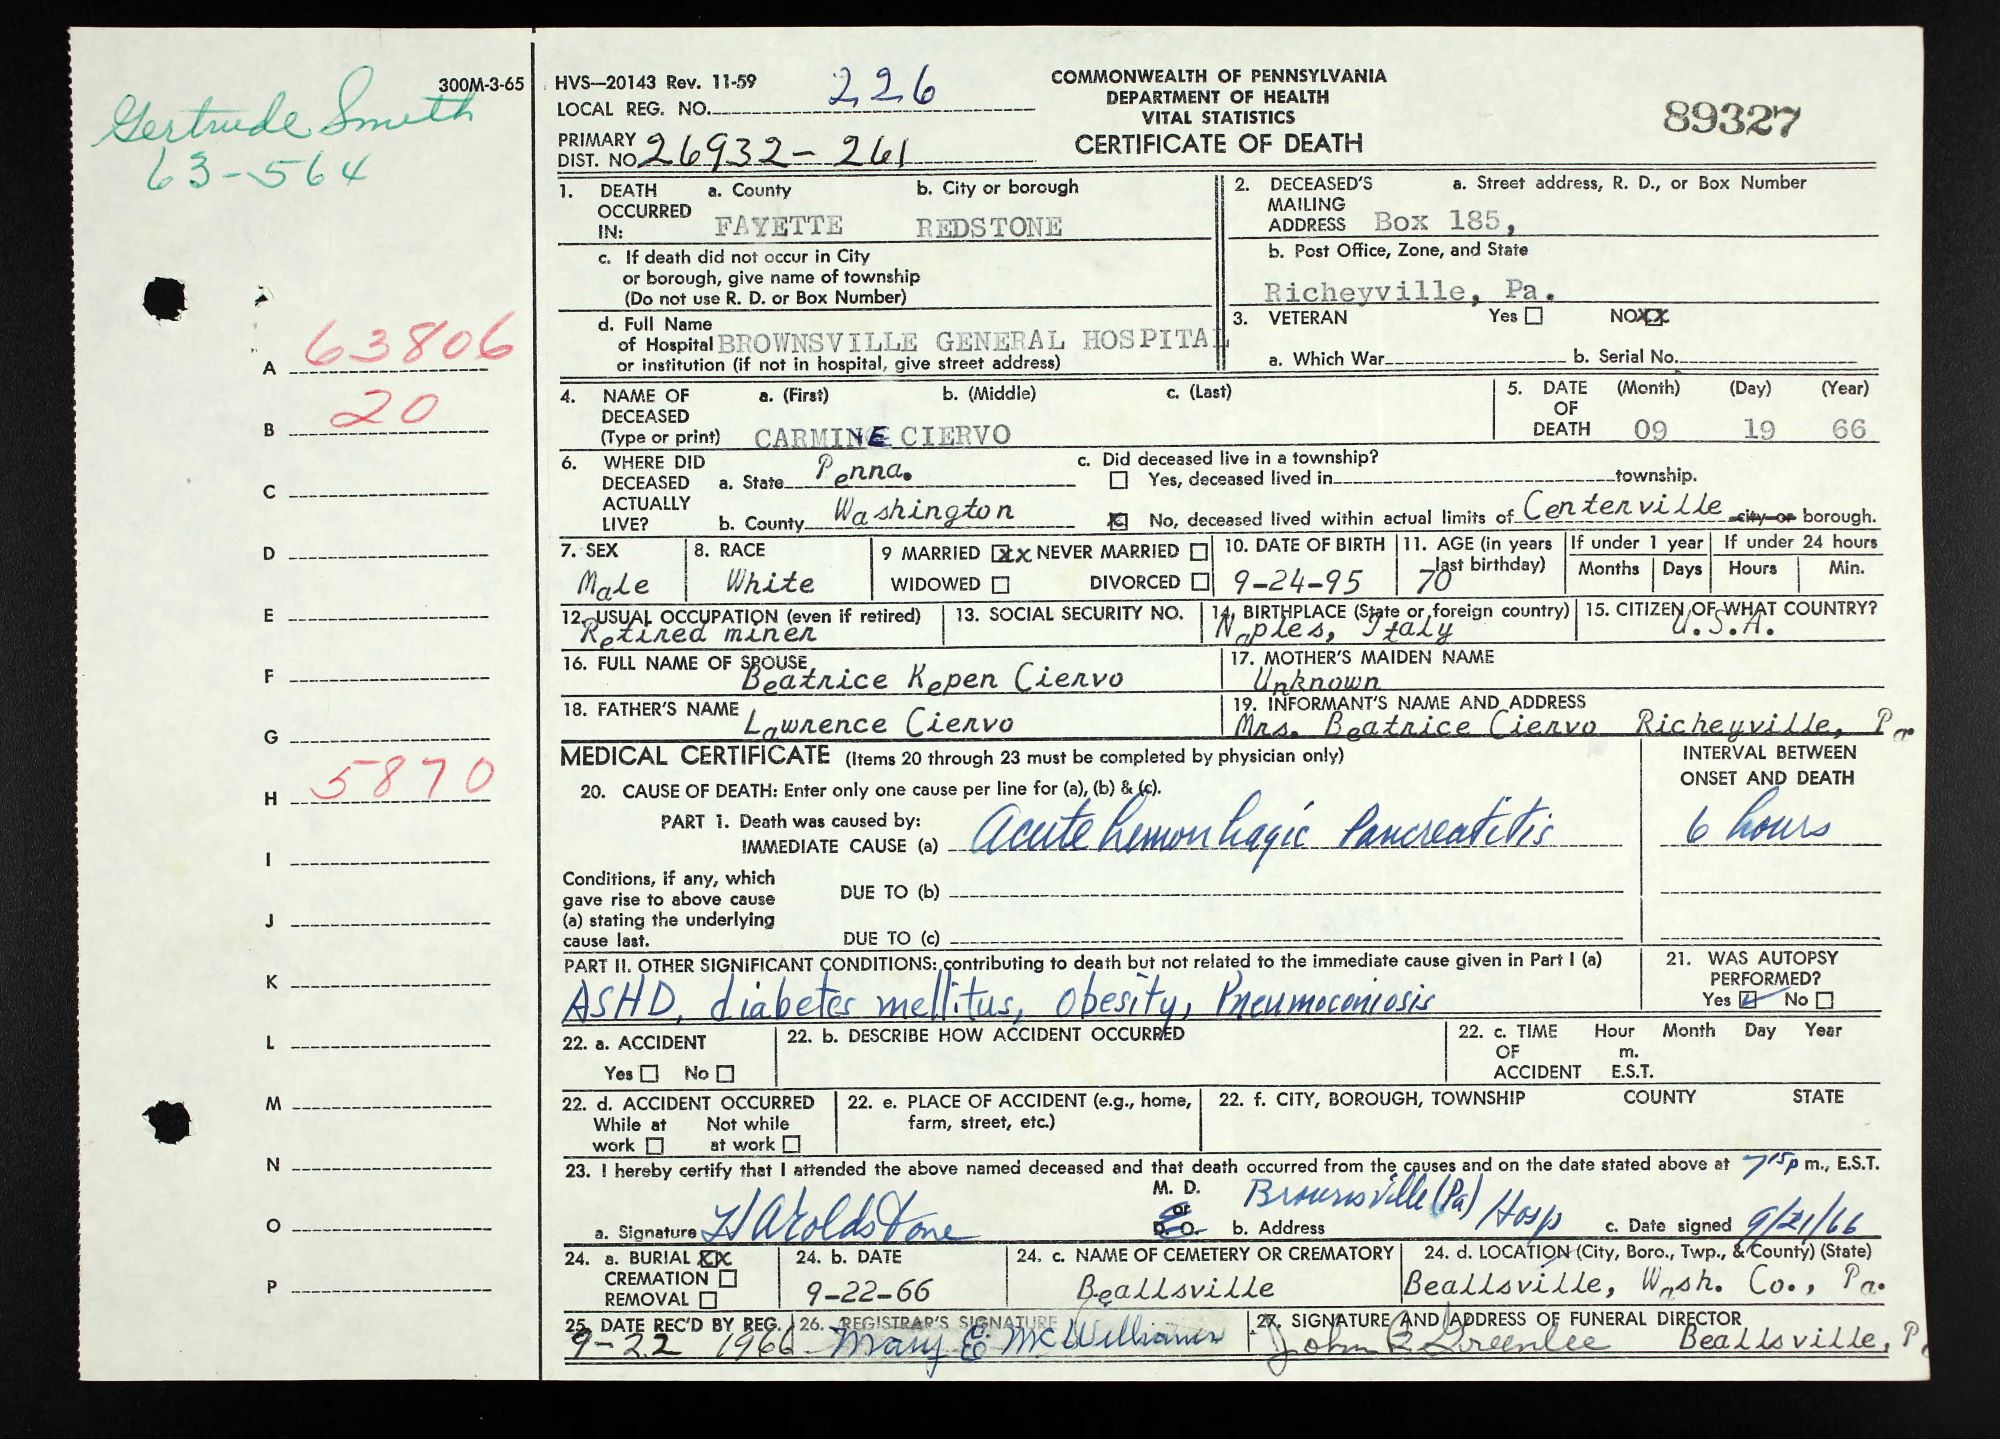 Gertrude Smith
63-564
300M-3-65
HVS—20143 Rev. 11-59
LOCAL REG. NO. 226
PRIMARY DIST. NO. 26932-261
COMMONWEALTH OF PENNSYLVANIA
DEPARTMENT OF HEALTH
VITAL STATISTICS
CERTIFICATE OF DEATH
89327
A 63806
B 20
C
D
E
F
G
H 5870
I
J
K
L
M
N
O
P
1. DEATH OCCURRED IN: a. County FAYETTE b. City or borough REDSTONE
c. If death did not occur in City
or borough, give name of township
(Do not use R. D. or Box Number)
d. Full Name
of Hospital BROWNSVILLE GENERAL HOSPITAL
or institution (if not in hospital, give street address)
2. DECEASED'S MAILING ADDRESS a. Street address, R. D., or Box Number
Box 185,
b. Post Office, Zone, and State
Richeyville, Pa.
3. VETERAN Yes NO XX
a. Which War b. Serial No.
4. NAME OF DECEASED (Type or print) a. (First) b. (Middle) c. (Last)
CARMINE CIERVO
5. DATE OF DEATH (Month) (Day) (Year)
09 19 66
6. WHERE DID DECEASED ACTUALLY LIVE? a. State Penna.
b. County Washington
c. Did deceased live in a township?
Yes, deceased lived in township.
No, deceased lived within actual limits of Centerville city or borough.
7. SEX Male
8. RACE White
9 MARRIED XX NEVER MARRIED
WIDOWED DIVORCED
10. DATE OF BIRTH 9-24-95
11. AGE (in years last birthday) 70
If under 1 year Months Days
If under 24 hours Hours Min.
12. USUAL OCCUPATION (even if retired) Retired miner
13. SOCIAL SECURITY NO.
14. BIRTHPLACE (State or foreign country) Naples, Italy
15. CITIZEN OF WHAT COUNTRY? U.S.A.
16. FULL NAME OF SPOUSE Beatrice Kepen Ciervo
17. MOTHER'S MAIDEN NAME Unknown
18. FATHER'S NAME Lawrence Ciervo
19. INFORMANT'S NAME AND ADDRESS
Mrs. Beatrice Ciervo Richeyville, Pa
MEDICAL CERTIFICATE (Items 20 through 23 must be completed by physician only)
INTERVAL BETWEEN ONSET AND DEATH
20. CAUSE OF DEATH: Enter only one cause per line for (a), (b) & (c).
PART I. Death was caused by:
IMMEDIATE CAUSE (a) Acute hemorrhagic Pancreatitis 6 hours
Conditions, if any, which
gave rise to above cause
(a) stating the underlying
cause last.
DUE TO (b)
DUE TO (c)
PART II. OTHER SIGNIFICANT CONDITIONS: contributing to death but not related to the immediate cause given in Part I (a)
ASHD, diabetes mellitus, obesity, Pneumoconiosis
21. WAS AUTOPSY PERFORMED?
Yes No
22. a. ACCIDENT
Yes No
22. b. DESCRIBE HOW ACCIDENT OCCURRED
22. c. TIME OF ACCIDENT Hour Month Day Year
m.
E.S.T.
22. d. ACCIDENT OCCURRED
While at work Not while at work
22. e. PLACE OF ACCIDENT (e.g., home, farm, street, etc.)
22. f. CITY, BOROUGH, TOWNSHIP COUNTY STATE
23. I hereby certify that I attended the above named deceased and that death occurred from the causes and on the date stated above at 7 15 p m., E.S.T.
a. Signature Harold Stone M. D. or D. O. b. Address Brownsville (Pa) Hosp c. Date signed 9/21/66
24. a. BURIAL XX
CREMATION
REMOVAL
24. b. DATE
9-22-66
24. c. NAME OF CEMETERY OR CREMATORY
Beallsville
24. d. LOCATION (City, Boro., Twp., & County) (State)
Beallsville, Wash. Co., Pa.
25. DATE REC'D BY REG.
9-22 1966
26. REGISTRAR'S SIGNATURE
Mary E McWilliams
27. SIGNATURE AND ADDRESS OF FUNERAL DIRECTOR
John Greenlee Beallsville, P